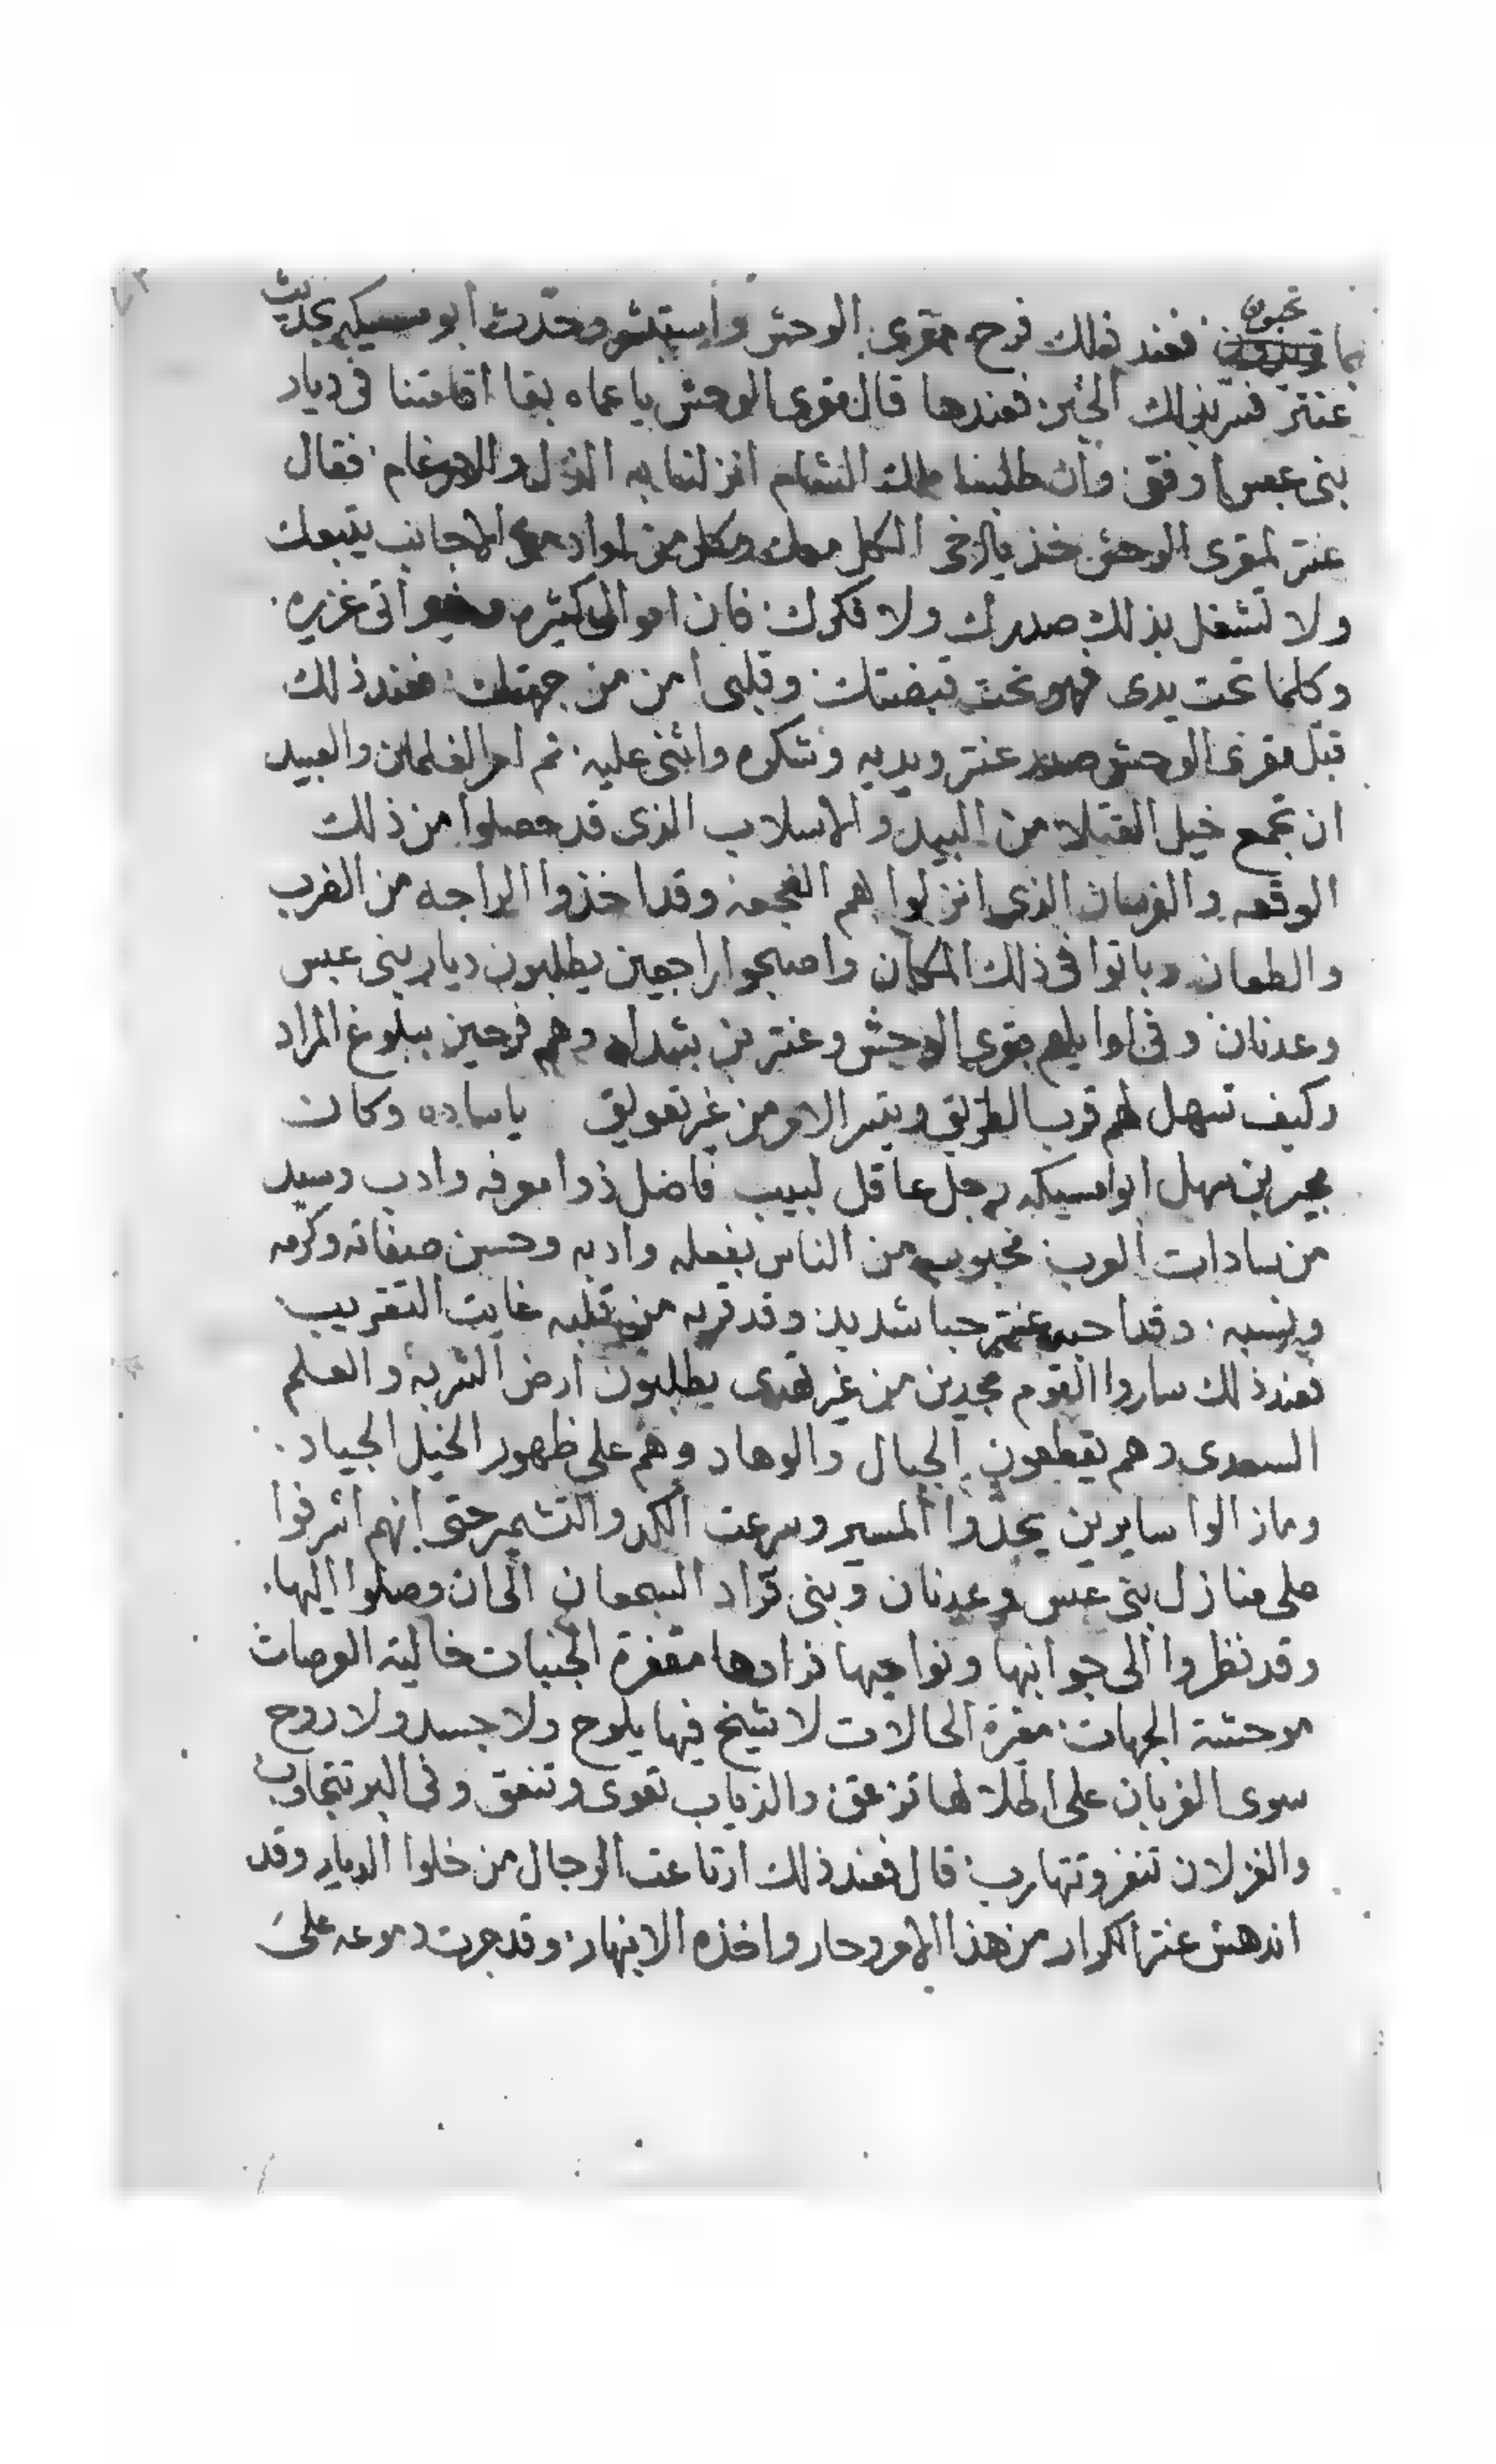 بما تحبون فعند ذلك فرح مقرى الوحش وأستبشر وحدّث أبو مسيكه بحديث
عنتر فسر بذلك الخبر فعندها قال مقرى الوحش يا عماه بقا اقامتنا فى ديار
بنى عبس اوفق وان طلبنا ملك الشام انزلنا به الذل والارغام فقال
عنتر لمقرى الوحش خذ يااخى الكل معك وكل من اراد من الاجانب يتبعك
ولا تشغل بذلك صدرك ولا فكرك فان اموالى كثيره وخيراتى غزيره
وكلما تحت يدى فهو تحت قبضتك وقلبى أمن من جهتك فعند ذلك
قبل مقرى الوحش صدر عنتر ويديه وشكره واثنى عليه ثم امر الغلمان والعبيد
ان تجمع خيل القتلا من البيد والاسلاب الذى قد حصلوا من ذلك
الوقعه والفرسان الذى انزلوا بهم الفجعه وقد اخذوا الراجه من الضرب
والطعان وباتوا فى ذلك المكان واصبحوا راجعين يطلبون ديار بنى عبس
وعدنان وفى اوايلهم مقرى الوحش وعنتر بن شداد وهم فرحين ببلوغ المراد
وكيف تسهل لهم قرب الطريق ويتسر الامر من غير تعويق ياساده وكان
بجير بن سهل ابوا مسيكه رجل عاقل لبيب فاضل ذوا معرفه وادب وسيد
من سادات العرب محبوب من الناس بفعله وادبه وحسن صفاته وكرمه
ونسبه وقد احبه عنتر حبا شديد وقد قربه من قلبه غايت التقريب
فعند ذلك ساروا القوم مجدين من غير تعدى يطلبون ارض الشربة والعلم
السعدى وهم يقطعون الجبال والوهاد وهم على ظهور الخيل الجياد
وما زالوا سايرين يجدّوا المسير وسرعت الكد والتشمير حتى انهم اشرفوا
على منازل بنى عبس وعدنان وبنى قراد الشجعان الى ان وصلوا اليها
وقد نظروا الى جوانبها ونواحيها فراوها مقفرة الجنبات خالية العرصات
موحشة الجهات مغيرة الحالات لا شيخ فيها يلوح ولا جسد ولا روح
سوى الغربان على اطلالها تزعق والذياب تعوى وتنعق وفى البر تتجاوب
والغزلان تنفر وتتهارب قال فعند ذلك ارتاعت الرجال من خلوا الديار وقد
اندهش عنتر الكرار من هذا الامر وحار واخذه الانبهار وقد جرت دموعه على